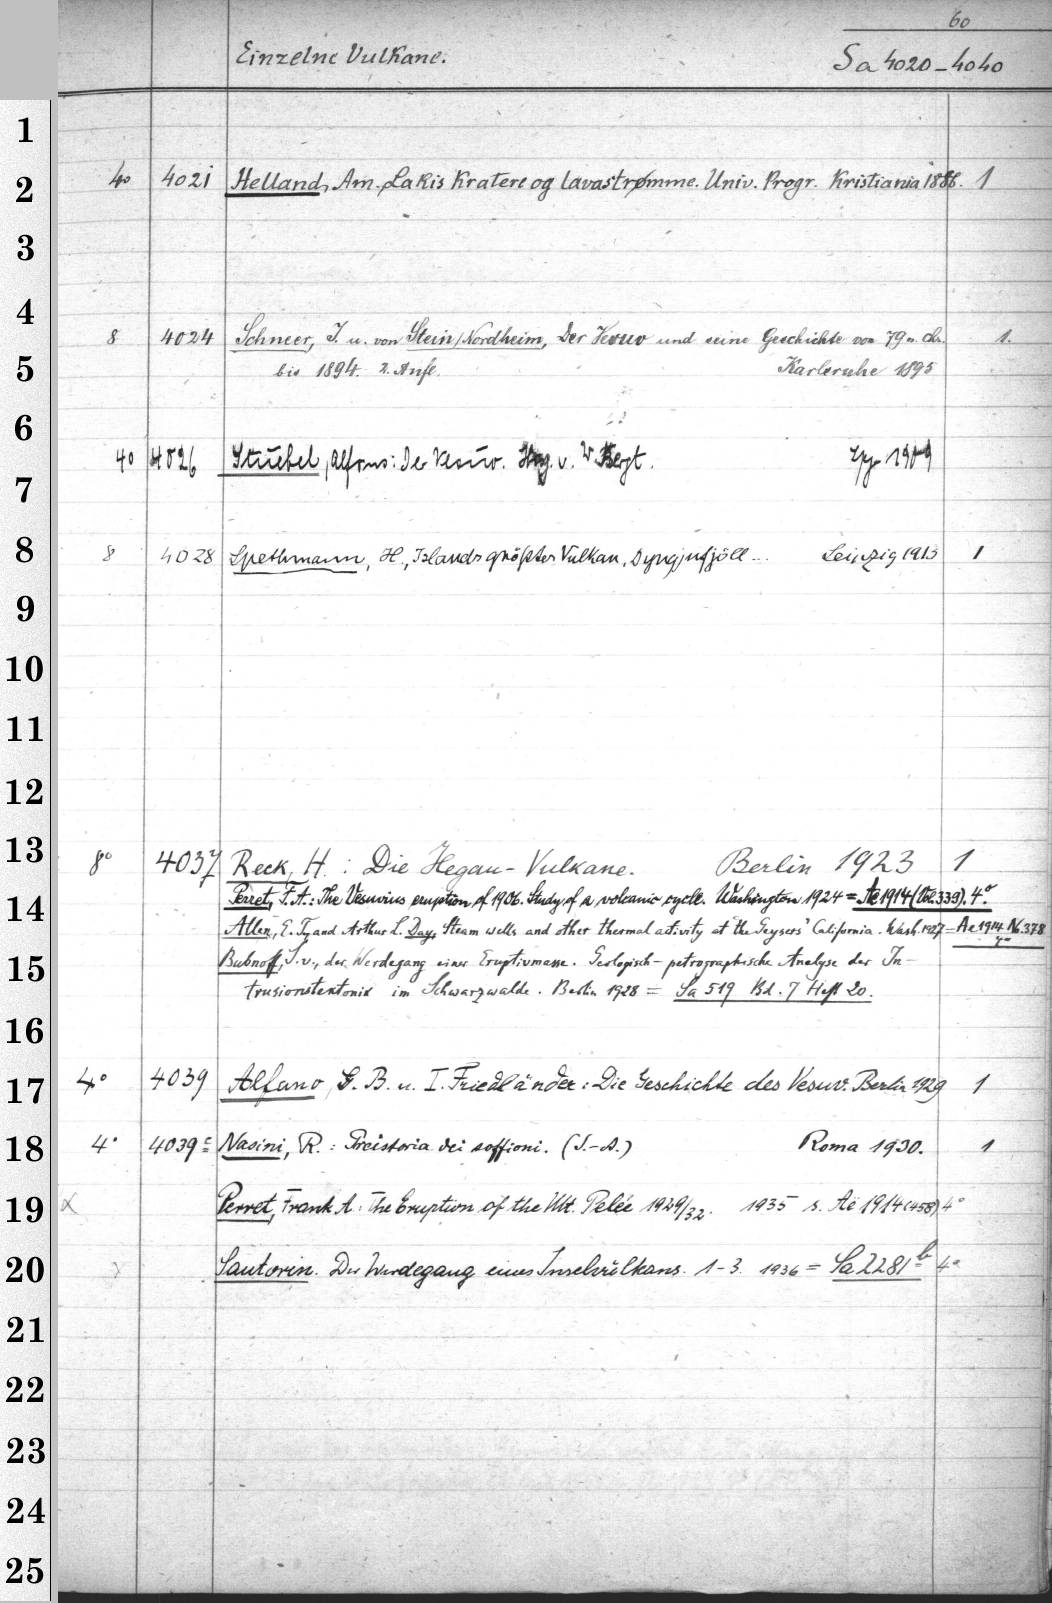 60
Einzelne Vulkane. Sa 4020-4040
1
2 4° 4021 Helland, Am. Lakis Kratere og Lavastrømme. Univ. Progr. Kristiania 1886. 1
3
4 8 4024 Schneer, J. u. von Stein/Nordheim, Der Vesuv und seine Geschichte von 79 n. Chr. 1.
5 bis 1894. 2. Aufl. Karlsruhe 1895
6
40 4026 Stuebel, Alfons: Der Vesuv. Hrsg. v. W. Bergt. Lpz 1909
7
8 8 4028 Spethmann, H., Islands größter Vulkan, Dyngjufjöll... Leipzig 1913 1
9
10
11
12
13 8° 4037 Reck, H.: Die Hegau-Vulkane. Berlin 1923 1
14 Perret, F. A.: The Vesuvius eruption of 1906. Study of a volcanic cycle. Washington 1924 = Ae 1914 (Vol. 339). 4°
Allen, E. T. and Arthur L. Day, Steam wells and other thermal activity at the Geysers' California. Wash. 1927 = Ae 1914 No. 378 4°
15 Bubnoff, S. v., der Werdegang einer Eruptivmasse. Geologisch-petrographische Analyse der In-
trusionstektonik im Schwarzwalde. Berlin 1928 = Sa 519 Bd. 7 Heft 20.
16
17 4° 4039 Alfano, G. B. u. I. Friedländer: Die Geschichte des Vesuv. Berlin 1929 1
18 4° 4039 c Nasini, R.: Preistoria dei soffioni. (S.-A.) Roma 1930. 1
19 x Perret, Frank A: The Eruption of the Mt. Pelée 1929/32. 1935 s. Ae 1914 (458) 4°
20 Santorin. Der Werdegang eines Inselvulkans. 1-3. 1936 = Sa 2281 b 4°
21
22
23
24
25